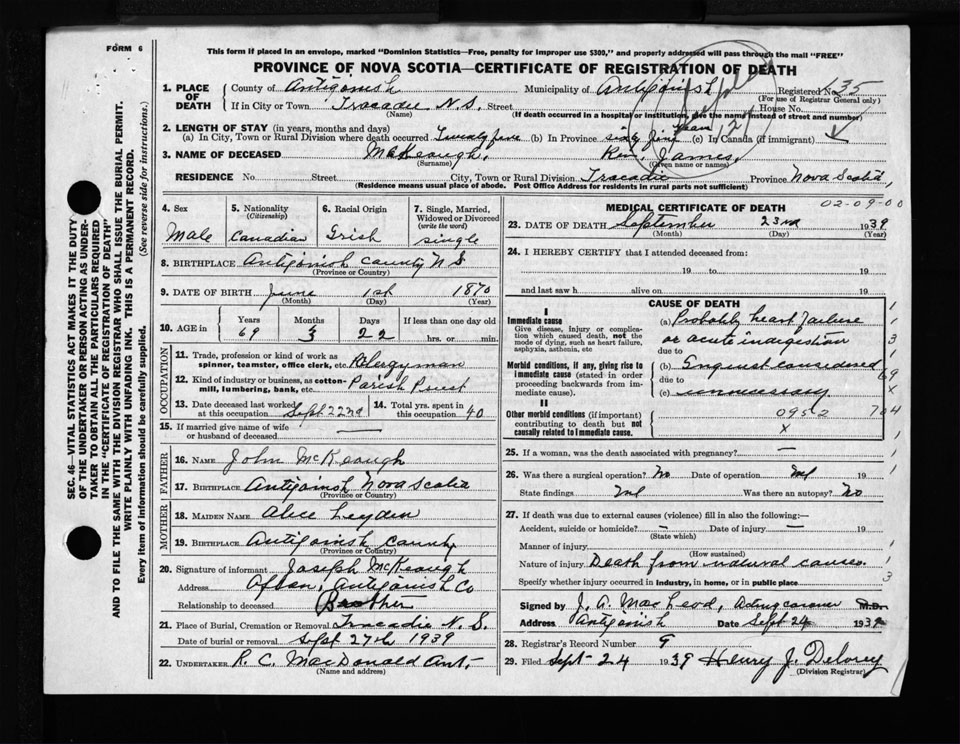 FORM 6
This form if placed in an envelope, marked "Dominion Statistics—Free, penalty for improper use $300," and properly addressed will pass through the mail "FREE"
PROVINCE OF NOVA SCOTIA—CERTIFICATE OF REGISTRATION OF DEATH
1. PLACE OF DEATH County of Antigonish Municipality of Antigonish Registered No. 35
(For use of Registrar General only)
If in City or Town Tracadie N.S. Street House No.
(Name) (If death occurred in a hospital or institution, give the name instead of street and number)
2. LENGTH OF STAY (in years, months and days)
(a) In City, Town or Rural Division where death occurred Twenty five (b) In Province sixty nine years (c) In Canada (if immigrant)
3. NAME OF DECEASED McKeough, Rev. James,
(Surname) (Given name or names)
RESIDENCE No. Street City, Town or Rural Division Tracadie Province Nova Scotia,
(Residence means usual place of abode. Post Office Address for residents in rural parts not sufficient)
4. Sex Male
5. Nationality (Citizenship) Canadian
6. Racial Origin Irish
7. Single, Married, Widowed or Divorced (write the word) single
8. BIRTHPLACE Antigonish County N S
(Province or Country)
9. DATE OF BIRTH June 1st 1870
(Month) (Day) (Year)
10. AGE in Years Months Days If less than one day old
69 3 22 hrs. or min.
OCCUPATION
11. Trade, profession or kind of work as spinner, teamster, office clerk, etc. Clergyman
12. Kind of industry or business, as cotton-mill, lumbering, bank, etc. Parish Priest
13. Date deceased last worked at this occupation Sept 22nd
14. Total yrs. spent in this occupation 40
15. If married give name of wife or husband of deceased —
FATHER
16. NAME John McKeough
17. BIRTHPLACE Antigonish Nova Scotia
(Province or Country)
MOTHER
18. MAIDEN NAME Alice Leyden
19. BIRTHPLACE Antigonish County
(Province or Country)
20. Signature of informant Joseph McKeough
Address Afton, Antigonish Co
Relationship to deceased Brother
21. Place of Burial, Cremation or Removal Tracadie N.S.
Date of burial or removal Sept 27th 1939
22. UNDERTAKER R. C. MacDonald Ant.
(Name and address)
MEDICAL CERTIFICATE OF DEATH
02-09-00
23. DATE OF DEATH September 23rd 1939
(Month) (Day) (Year)
24. I HEREBY CERTIFY that I attended deceased from:
19 to 19
and last saw h alive on 19
CAUSE OF DEATH
I
Immediate cause
Give disease, injury or complication which caused death, not the mode of dying, such as heart failure, asphyxia, asthenia, etc
(a) Probably heart failure or acute indigestion
due to
Morbid conditions, if any, giving rise to immediate cause (stated in order proceeding backwards from immediate cause).
(b) Inquest considered
due to
(c) unnecessary
II
Other morbid conditions (if important) contributing to death but not causally related to immediate cause.
0952 704
x
25. If a woman, was the death associated with pregnancy? —
26. Was there a surgical operation? No Date of operation Nil 19
State findings Nil Was there an autopsy? No
27. If death was due to external causes (violence) fill in also the following:—
Accident, suicide or homicide? – Date of injury – 19
(State which)
Manner of injury
(How sustained)
Nature of injury Death from natural causes
Specify whether injury occurred in industry, in home, or in public place
Signed by J. A. MacLeod, Acting coroner M.D.
Address Antigonish Date Sept 24 1939
28. Registrar's Record Number 9
29. Filed Sept-24 1939 Henry J. Delorey
(Division Registrar)
SEC. 46—VITAL STATISTICS ACT MAKES IT THE DUTY OF THE UNDERTAKER OR PERSON ACTING AS UNDERTAKER TO OBTAIN ALL THE PARTICULARS REQUIRED IN THE "CERTIFICATE OF REGISTRATION OF DEATH" AND TO FILE THE SAME WITH THE DIVISION REGISTRAR WHO SHALL ISSUE THE BURIAL PERMIT.
WRITE PLAINLY WITH UNFADING INK. THIS IS A PERMANENT RECORD.
Every item of information should be carefully supplied. (See reverse side for instructions.)